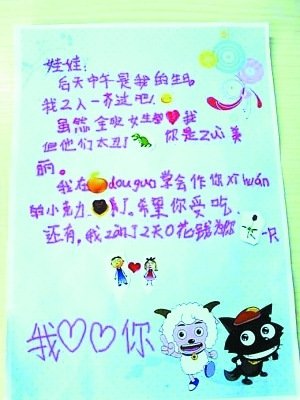 娃娃:
后天中午是我的生日,
我2人一齐过吧!
虽然全班女生都❤我
但他们太丑了 你是zuì美
丽。
我在douguo学会作你xǐ huán
的小 力 了。希望你爱吃
还有,我 2天0花钱为你 一只
我♡♡你